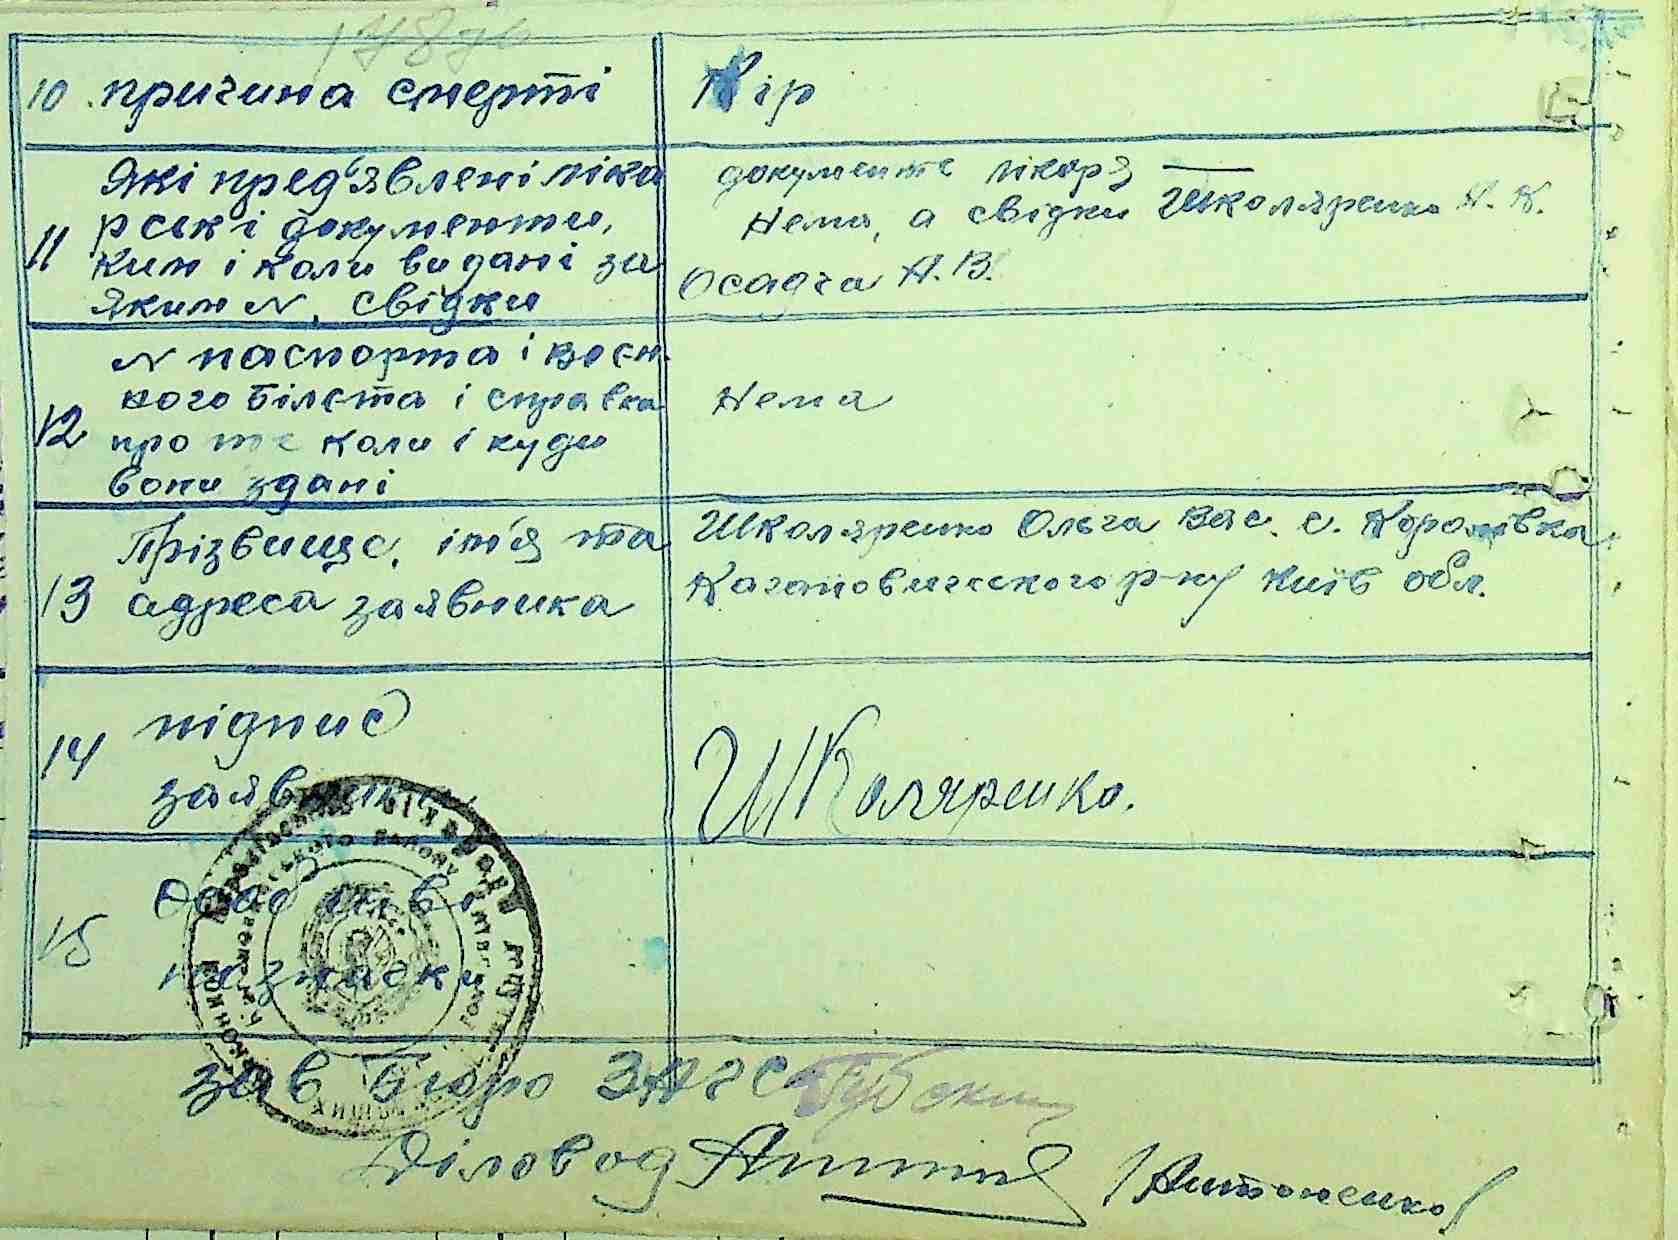 10 причина смерті
Кір
11 Які пред'явлені ліка
рські документи,
ким і коли видані за
яким N, свідки
документа лікоря —
Нема, а свідки Школяренко А. К.
Осадча А. В.
12 N паспорта і воєн.
кого білєта і справка
про те коли і куди
вони здані
Нема
13 Прізвище, ім'я та
адреса заявника
Школяренко Ольга Вас. с. Королівка
Кагановичського р-ну Київ обл.
14 підпис
заявника
Школяренко.
15
позначки
зав Бюро ЗАГС
Діловод
/Антоненко/